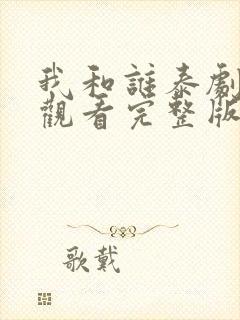 我和誰泰劇
觀看完整版
歌戴